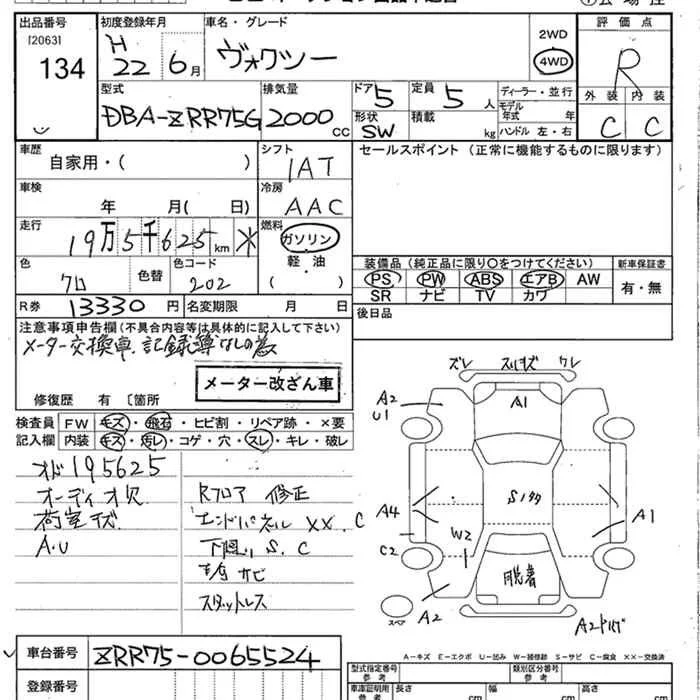 出品番号 初度登録年月 車名・グレード 評価点
[2063] H 2WD
134 22 6月 ヴォクシー 4WD R
型式 排気量 ドア 定員 ディーラー・並行 外装 内装
DBA-ZRR75G 2000cc 5 5人 モデル年式 年式 C C
形状 積載 ハンドル 左・右
SW kg
車歴 シフト セールスポイント (正常に機能するものに限ります)
自家用・( ) IAT
車検 冷房
年 月( 日) AAC
走行 燃料
19万5千625km * ガソリン
軽・油
( )
色 色替 色コード
クロ 202
装備品(純正品に限り○をつけてください) 新車保証書
PS PW ABS エアB AW 有・無
SR ナビ TV カワ
R券 13330円 名変期限 月 日 後日品
注意事項申告欄(不具合内容等は具体的に記入して下さい)
メーター交換車.記録簿なしの為
メーター改ざん車
修復歴 有 〔箇所
検査員 FW キズ・飛石・ヒビ割・リペア跡・×要
記入欄 内装 キズ・汚レ・コゲ・穴・スレ・キレ・破レ
オド195625
オーディオ欠 Rフロア 修正
荷室キズ エンドパネル XX.C
A.U 下廻り S.C
サビ
スタットレス
ズレ スリキズ ワレ
A2 A1
U1
A4 A1
C2 W2
脱着
A2
スペア
A-キズ E-エクボ U-凹み W-補修跡 S-サビ C-腐食 XX-交換済
車台番号 ZRR75-0065524
型式指定番号 類別区分番号
登録番号 車庫証明用 長さ 幅 高さ
参考 cm cm cm